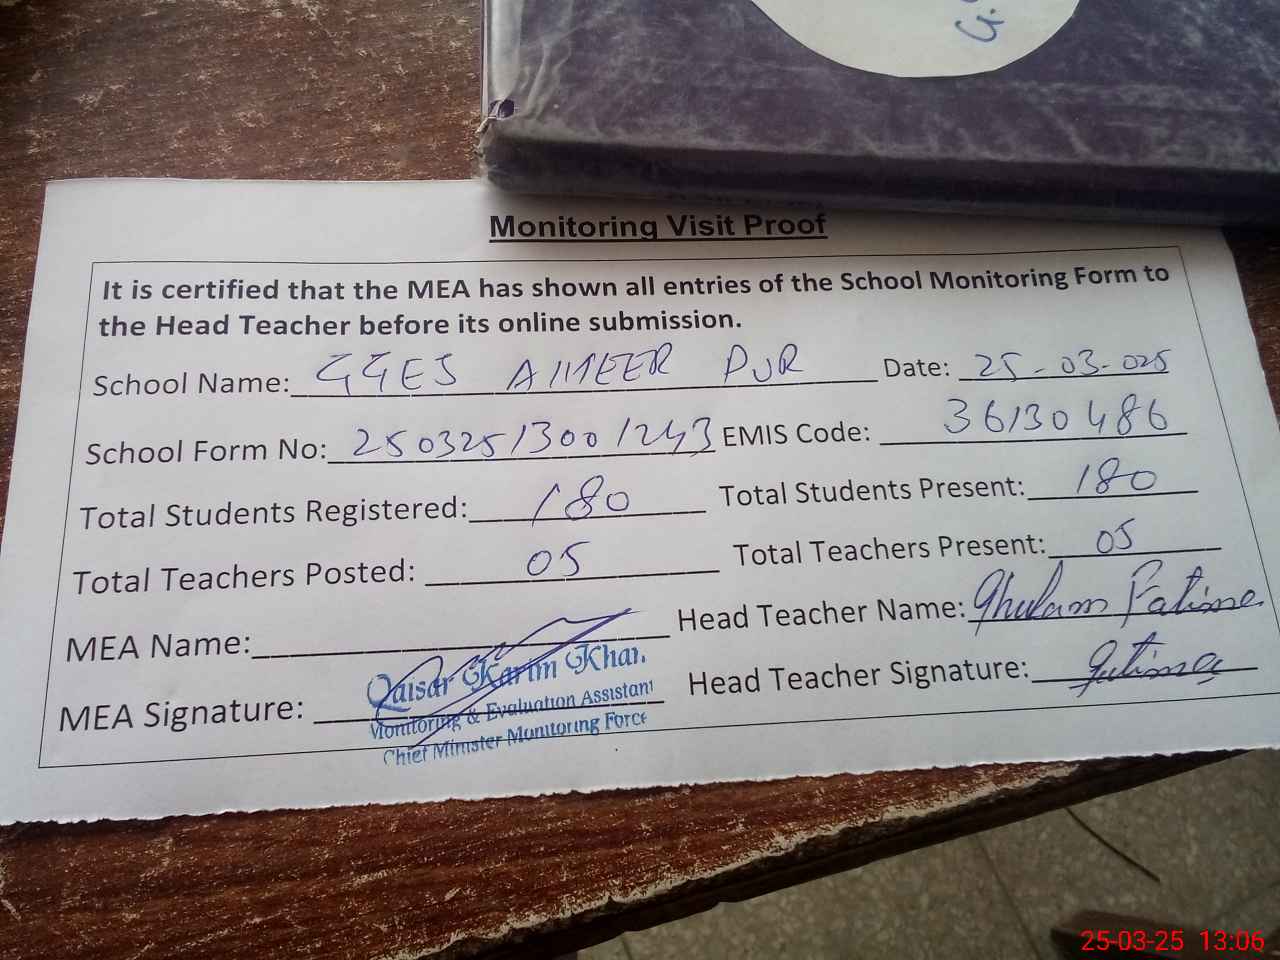 G.
Monitoring Visit Proof
It is certified that the MEA has shown all entries of the School Monitoring Form to
the Head Teacher before its online submission.
School Name: GGES AMEER PUR Date: 25-03-025
School Form No: 25032513001243 EMIS Code: 36130486
Total Students Registered: 180 Total Students Present: 180
Total Teachers Posted: 05 Total Teachers Present: 05
MEA Name: Head Teacher Name: Ghulam Fatima
MEA Signature: Head Teacher Signature: Fatima
Qaisar Karim Khan
Monitoring & Evaluation Assistant
Chief Minister Monitoring Force
25-03-25 13:06